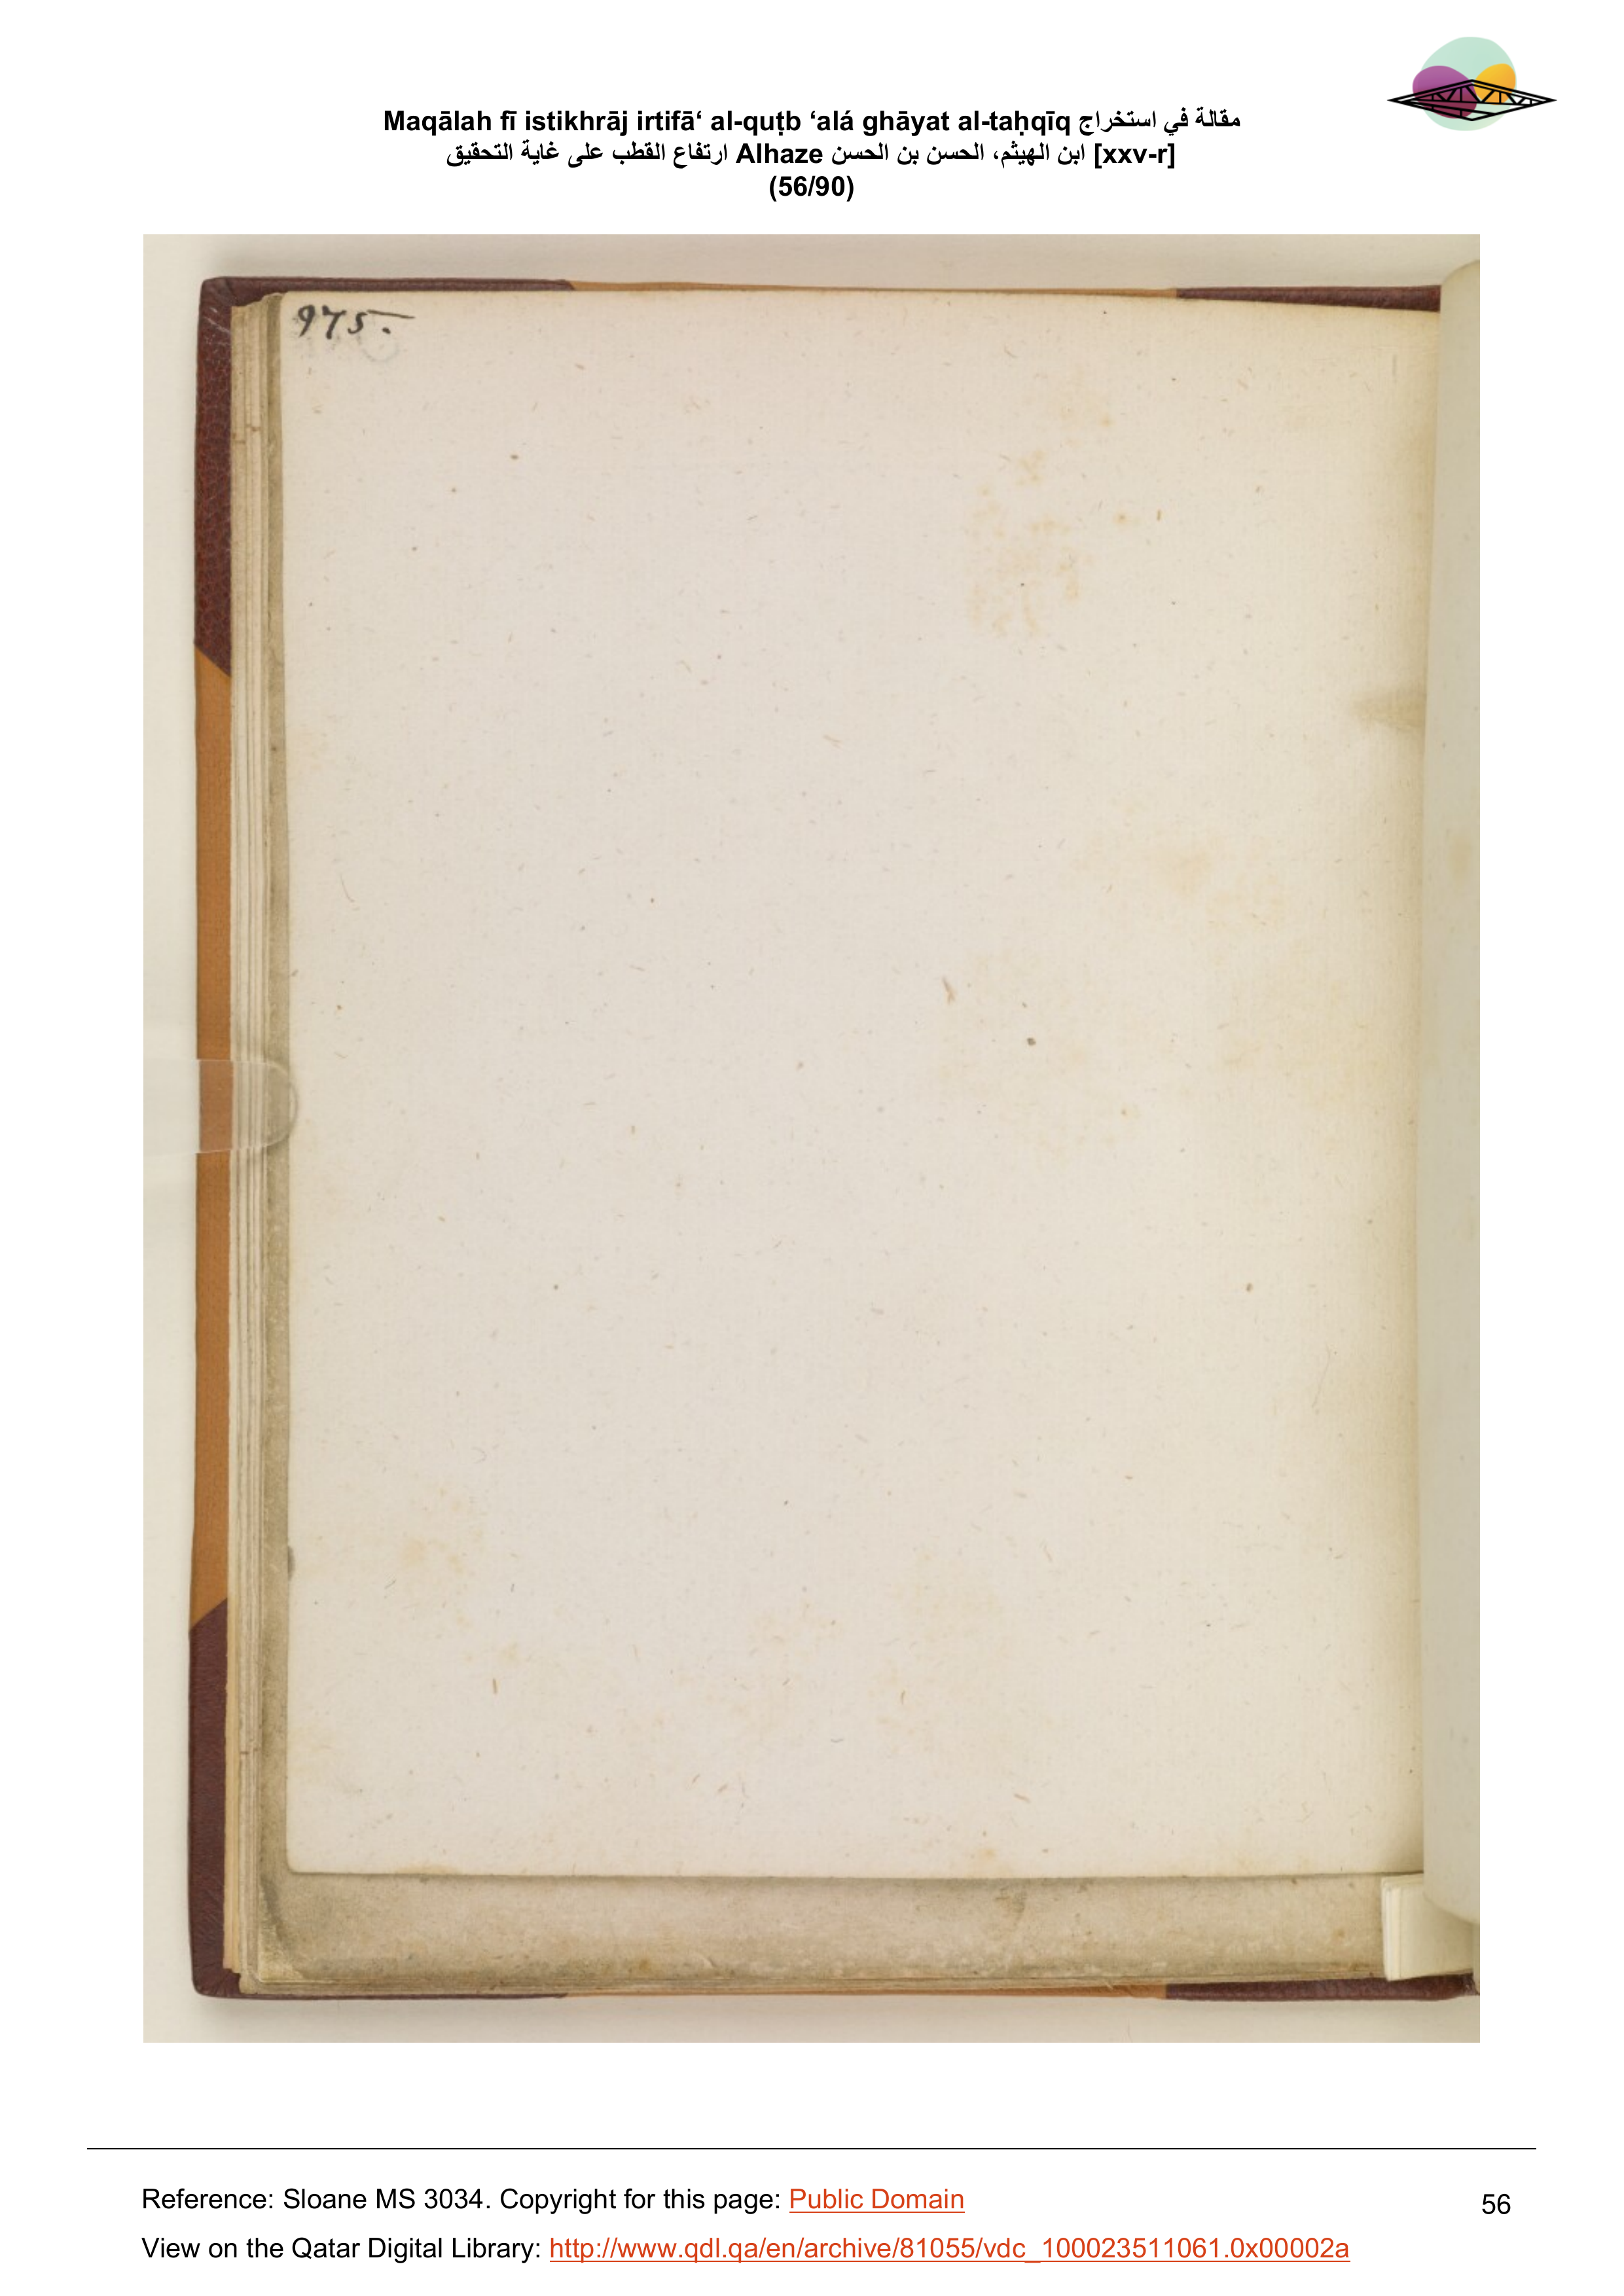 Maqālah fī istikhrāj irtifā‘ al-quṭb ‘alá ghāyat al-taḥqīq مقالة في استخراج
ارتفاع القطب على غاية التحقيق Alhaze ابن الهيثم، الحسن بن الحسن [xxv-r]
(56/90)
975.
Reference: Sloane MS 3034. Copyright for this page: Public Domain
56
View on the Qatar Digital Library: http://www.qdl.qa/en/archive/81055/vdc_100023511061.0x00002a